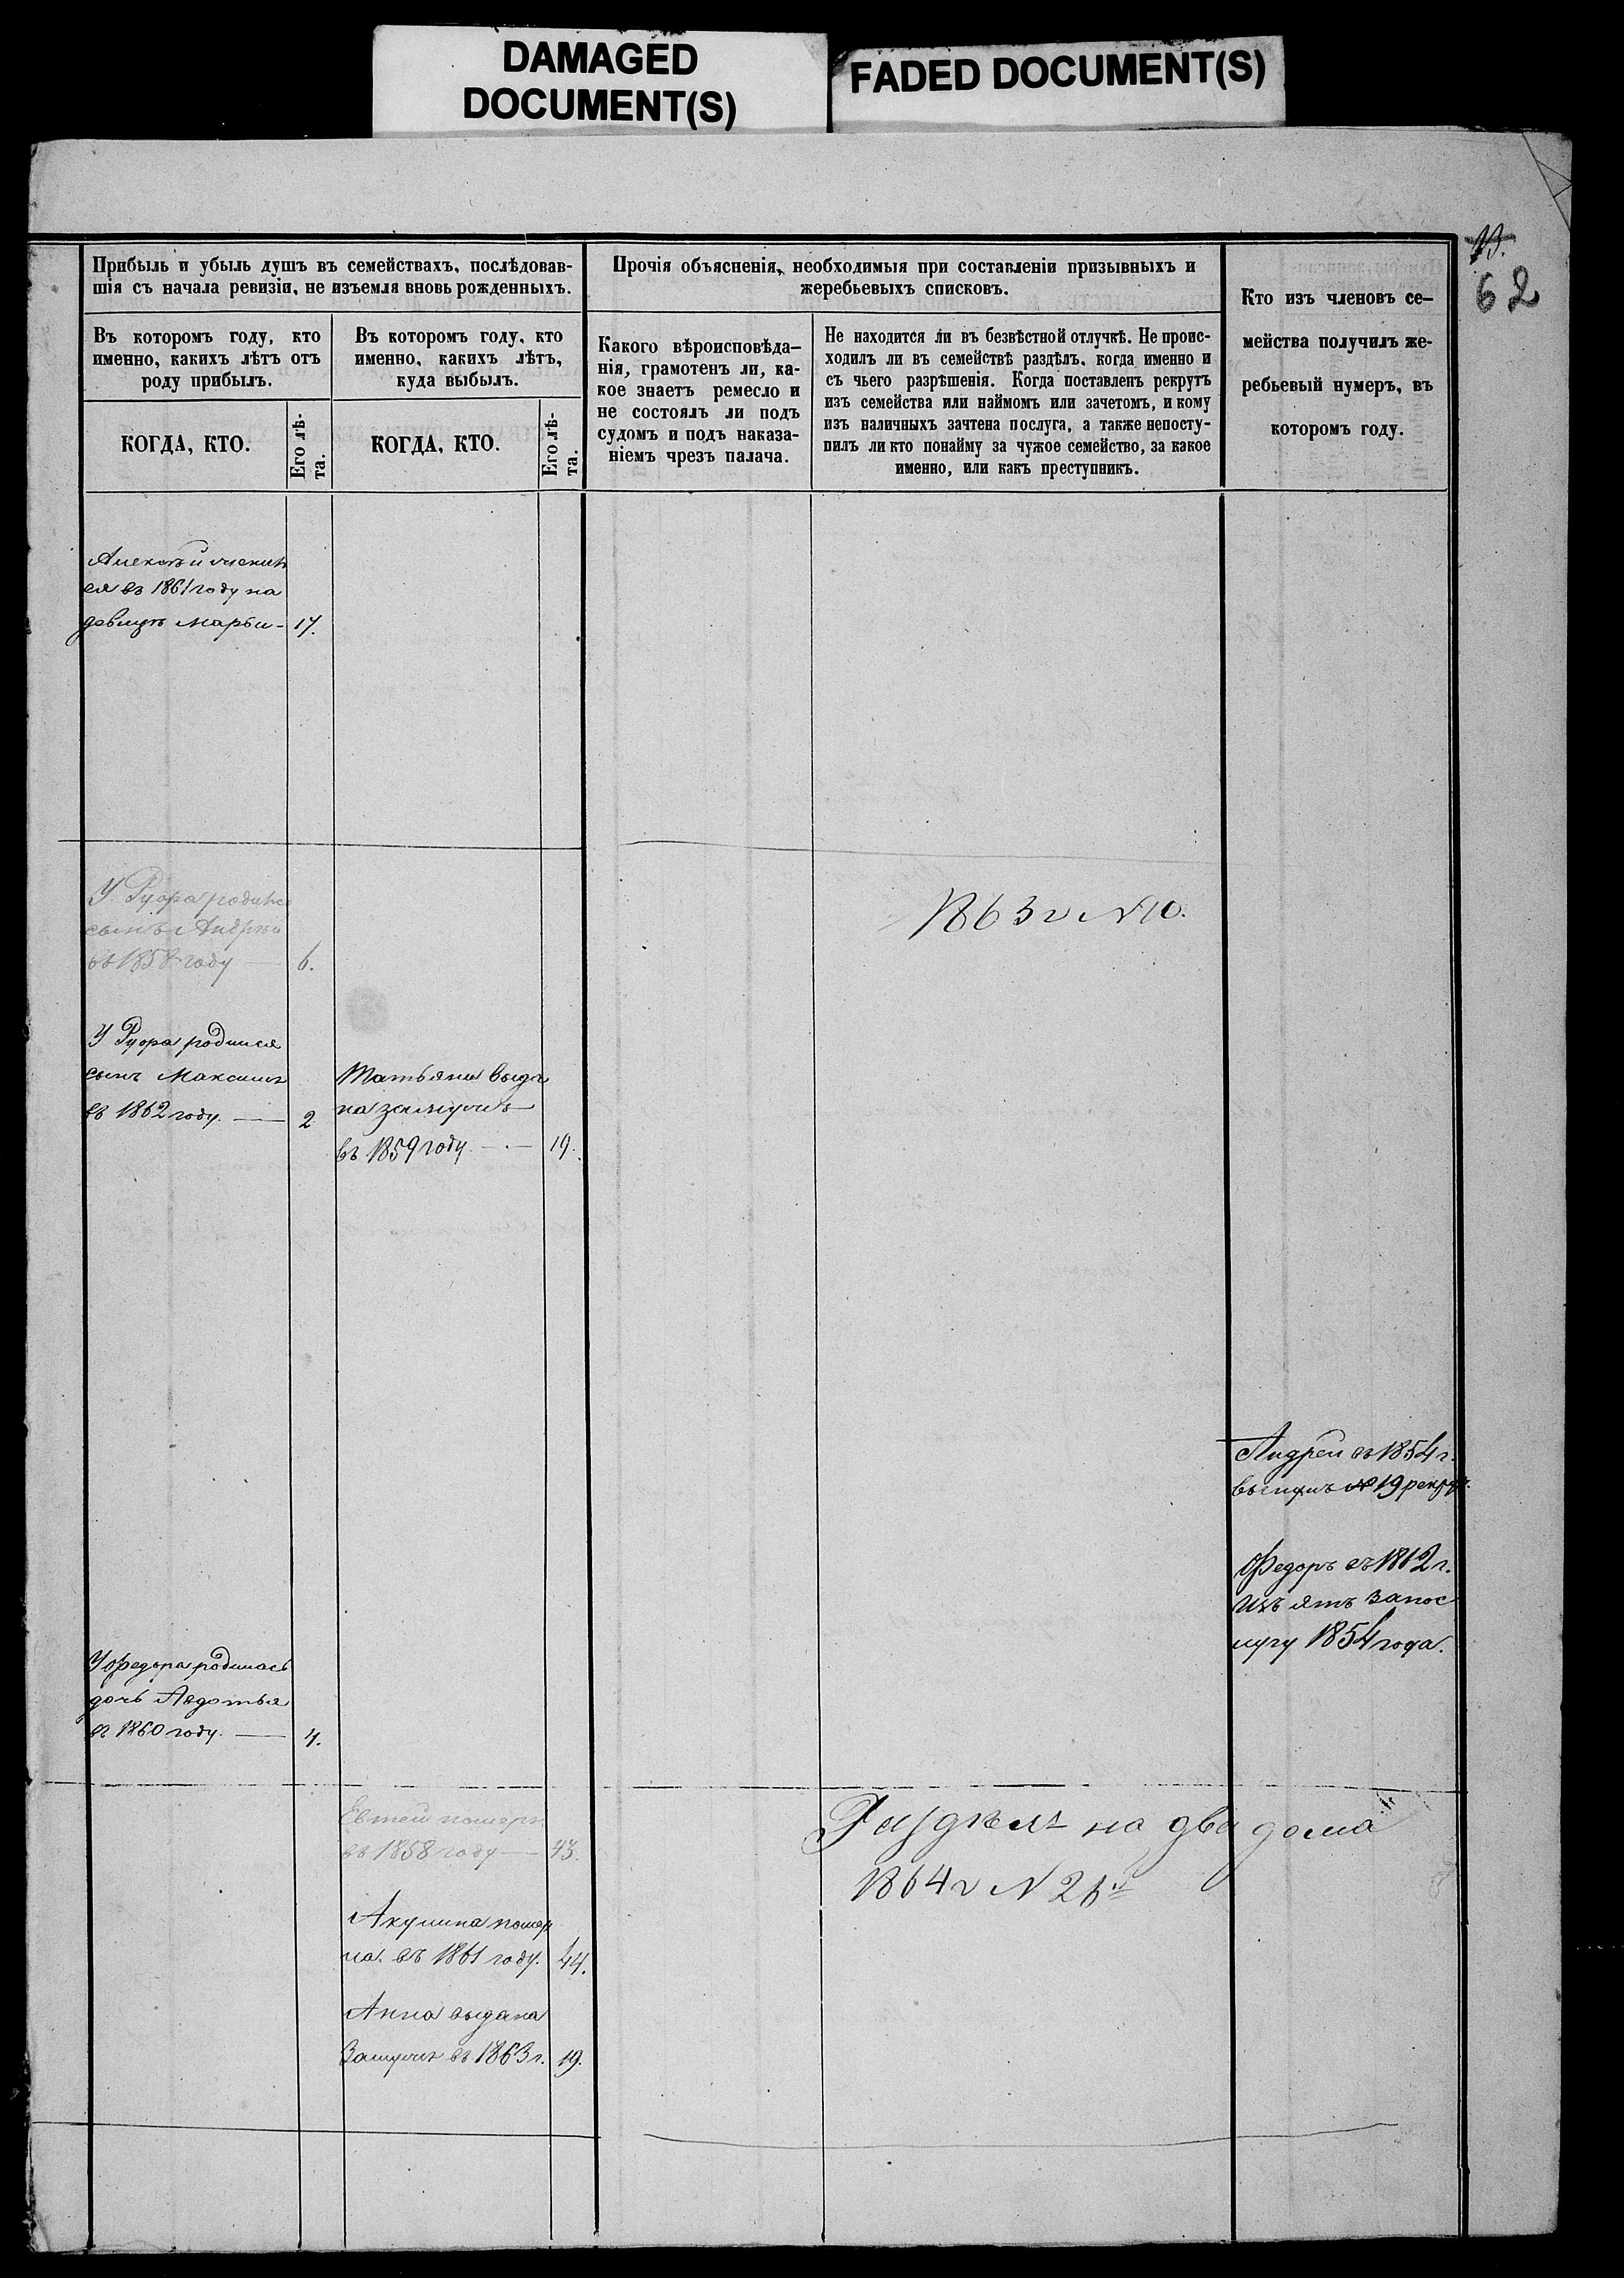 DAMAGED
DOCUMENT(S)
FADED DOCUMENT(S)
13.
62
Прибыль и убыль душъ въ семействахъ, послѣдовав-
шія съ начала ревизіи, не изъемля вновь рожденныхъ.
Въ которомъ году, кто
именно, какихъ лѣтъ отъ
роду прибылъ.
КОГДА, КТО.
Его лѣ-
та.
Въ которомъ году, кто
именно, какихъ лѣтъ,
куда выбылъ.
КОГДА, КТО.
Его лѣ-
та.
Прочія объясненія, необходимыя при составленіи призывныхъ и
жеребьевыхъ списковъ.
Какого вѣроисповѣда-
нія, грамотенъ ли, ка-
кое знаетъ ремесло и
не состоялъ ли подъ
судомъ и подъ наказа-
ніемъ чрезъ палача.
Не находится ли въ безвѣстной отлучкѣ. Не проис-
ходилъ ли въ семействѣ раздѣлъ, когда именно и
съ чьего разрѣшенія. Когда поставленъ рекрутъ
изъ семейства или наймомъ или зачетомъ, и кому
изъ наличныхъ зачтена послуга, а также непосту-
пилъ ли кто понайму за чужое семейство, за какое
именно, или какъ преступникъ.
Кто изъ членовъ се-
мейства получилъ же-
ребьевый нумеръ, въ
которомъ году.
Алексѣй женил
ся въ 1861 году на
дѣвицѣ Марьи - 17.
У родился
сынъ Андрѣй
въ 1858 году — 6.
1863 г N 10.
У родился
сынъ Максимъ
въ 1862 году. — 2
Татьяна выда
на замужъ
въ 1859 году — 19.
Андрей въ 1854 г.
вынулъ № 19 рекрут.
Федоръ въ 1862 г.
изъятъ запос
лугу 1854 года.
У Федора родилась
дочь Авдотья
въ 1860 году. — 4.
Евтей померъ
въ 1858 году — 43.
Раздѣлъ на два дома
1864 г N 26й
Акулина помер
ла въ 1861 году. 44.
Анна выдана
Замужъ въ 1863 г. 19.